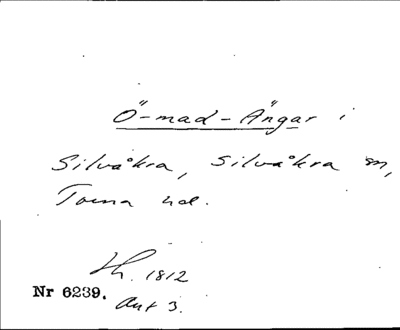 Ö-mad-Ängar i
Silvåkra, Silvåkra sn,
Torna hd.
Lh. 1812
Nr 6239.
Akt 3.